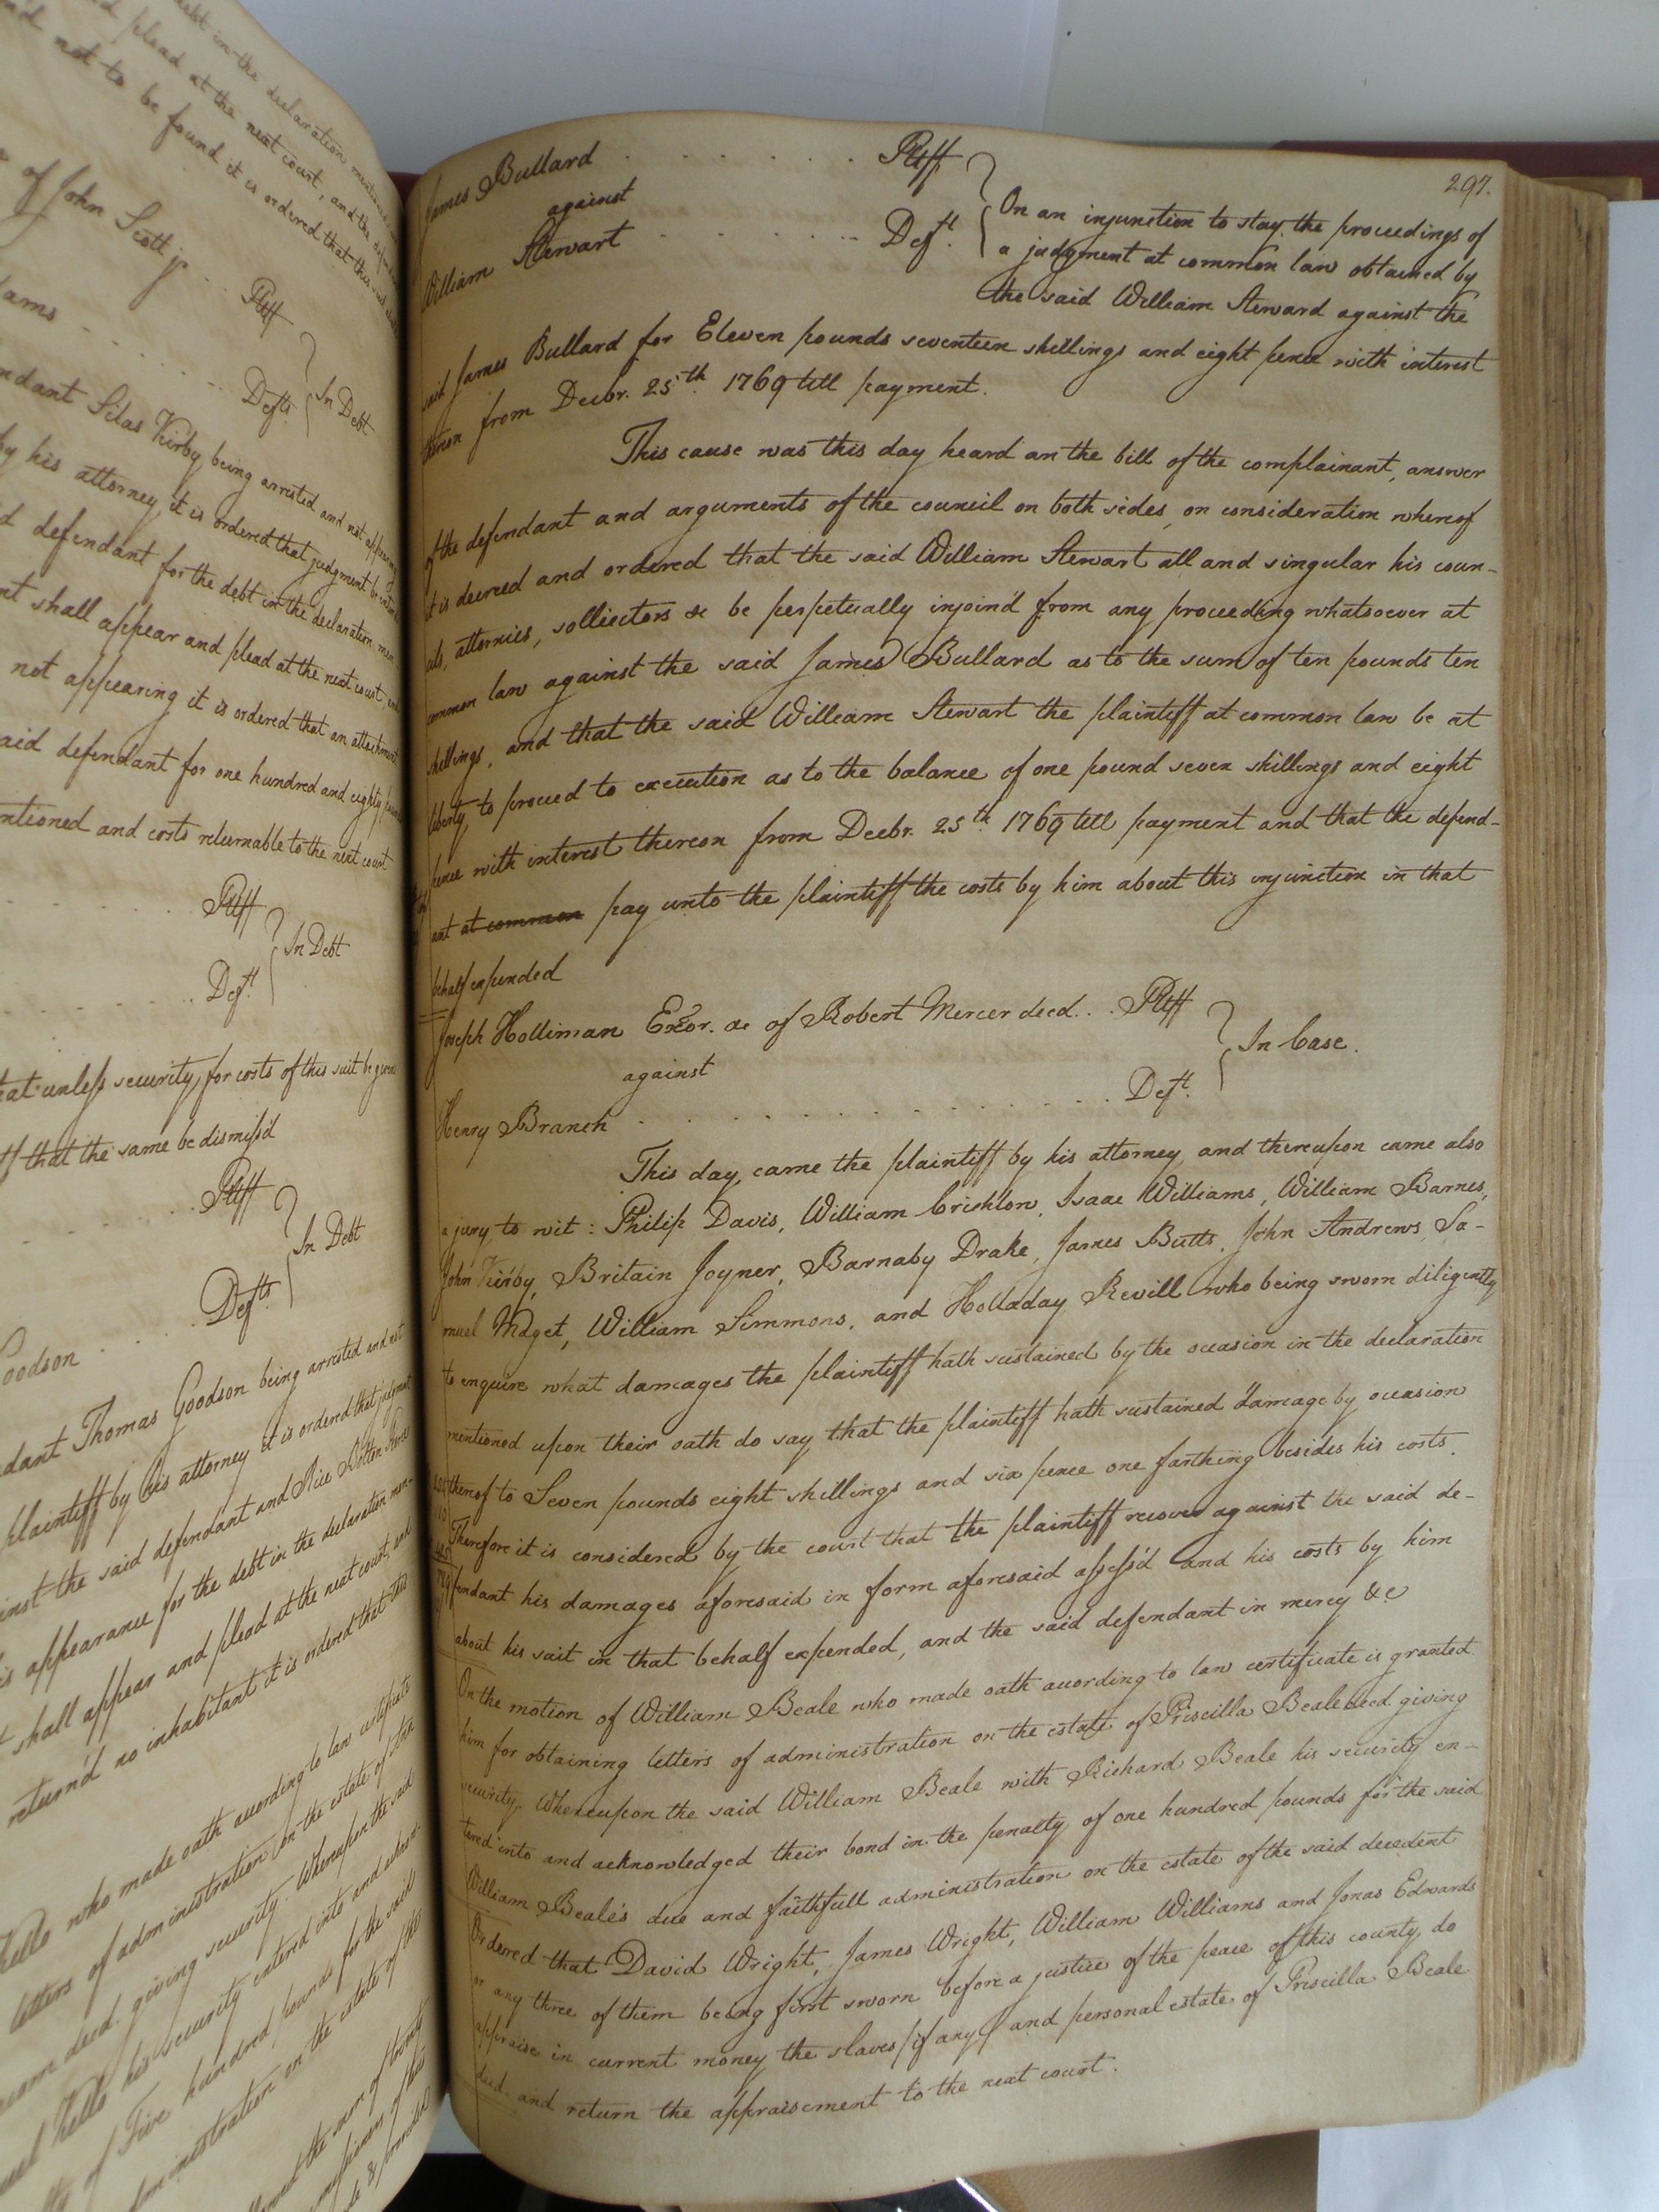 debt in the declaration mentioned
plead at the next court, and the defendant
not to be found it is ordered that the said
of John Scott jr . . Pltff
Defts. In Debt
ndant Silas Kirby being arrested and not appearing
by his attorney it is ordered that judgment be entered
d defendant for the debt in the declaration men
nt shall appear and plead at the next court, and
not appearing it is ordered that an attachment
aid defendant for one hundred and eighty pounds
ntioned and costs returnable to the next court
Pltff
In Debt
Deft.
that unless security for costs of this suit be given
that the same be dismiss'd
Pltff
In Debt
Defts.
Goodson
ndant Thomas Goodson being arrested and not
plaintiff by his attorney it is ordered that judgment
inst the said defendant and
is appearance for the debt in the declaration men-
t shall appear and plead at the next court, and
return'd no inhabitant it is ordered that this
who made oath according to law certificate
letters of administration on the estate of
deced. giving security. Whereupon the said
his security entered into and
of Five hundred pounds for the said
administration on the estate of the
the sum of
297.
James Bullard . . . . . . . Pltff
against
William Stewart . . . . . . . Deft.
On an injunction to stay the proceedings of
a judgment at common law obtained by
the said William Steward against the
said James Bullard for Eleven pounds seventeen shillings and eight pence with interest
thereon from Decbr. 25th. 1769 till payment.
This cause was this day heard on the bill of the complainant, answer
of the defendant and arguments of the council on both sides, on consideration whereof
it is decreed and ordered that the said William Stewart all and singular his coun-
cils, attornies, sollicitors &c be perpetually injoin'd from any proceeding whatsoever at
common law against the said James Bullard as to the sum of ten pounds ten
shillings, and that the said William Stewart the plaintiff at common law be at
liberty to proceed to execution as to the balance of one pound seven shillings and eight
pence with interest thereon from Decbr. 25th. 1769 till payment and that the defend-
ant at common pay unto the plaintiff the costs by him about this injunction in that
behalf expended
Joseph Holliman Exor. &c of Robert Mercer deced. . . Pltff
against
In Case.
Henry Branch . . . . . . . Deft.
This day came the plaintiff by his attorney and thereupon came also
a jury, to wit: Philip Davis, William Crichlow, Isaac Williams, William Barnes,
John Kirby, Britain Joyner, Barnaby Drake, James Butts, John Andrews, Sa-
muel Midget, William Simmons, and Holladay Revill who being sworn diligently
to enquire what damages the plaintiff hath sustained by the occasion in the declaration
mentioned upon their oath do say that the plaintiff hath sustained damage by occasion
thereof to Seven pounds eight shillings and six pence one farthing besides his costs.
Therefore it is considered by the court that the plaintiff recover against the said de-
fendant his damages aforesaid in form aforesaid assess'd and his costs by him
about his suit in that behalf expended, and the said defendant in mercy &c
On the motion of William Beale who made oath according to law certificate is granted
him for obtaining letters of administration on the estate of Priscilla Beale deced giving
security. Whereupon the said William Beale with Richard Beale his security en-
tered into and acknowledged their bond in the penalty of one hundred pounds for the said
William Beale's due and faithfull administration on the estate of the said decedent
Ordered that David Wright, James Wright, William Williams and Jonas Edwards
or any three of them being first sworn before a justice of the peace of this county, do
appraise in current money the slaves/if any/ and personal estate of Priscilla Beale
deced. and return the appraisement to the next court.